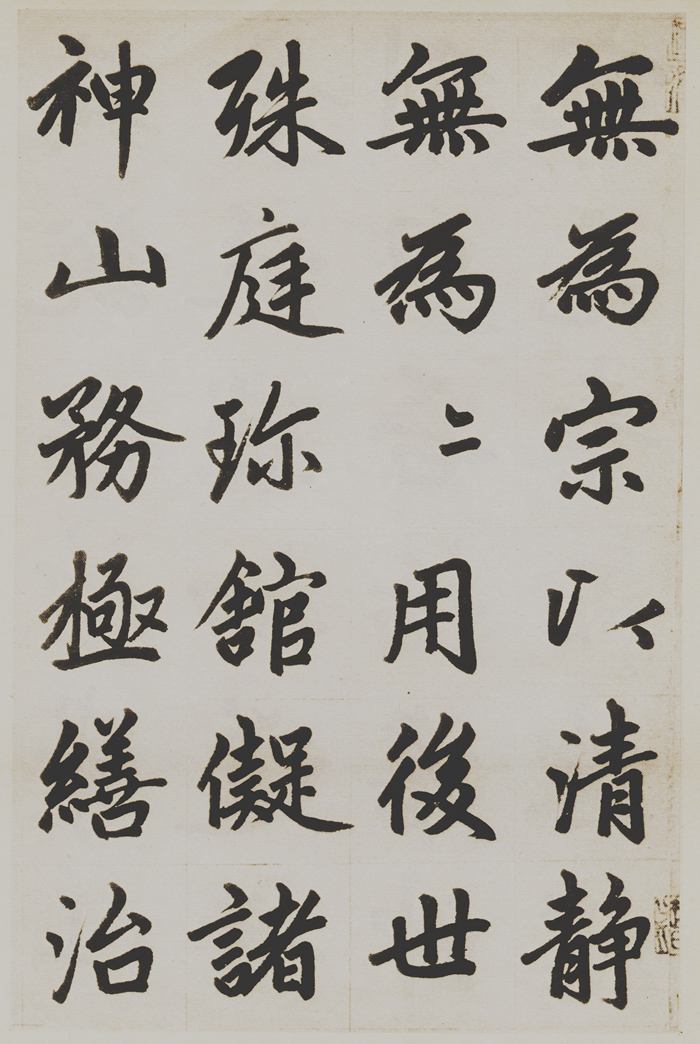 無為宗以清静
無為為用後世
殊庭珎舘儗諸
神山務極繕治